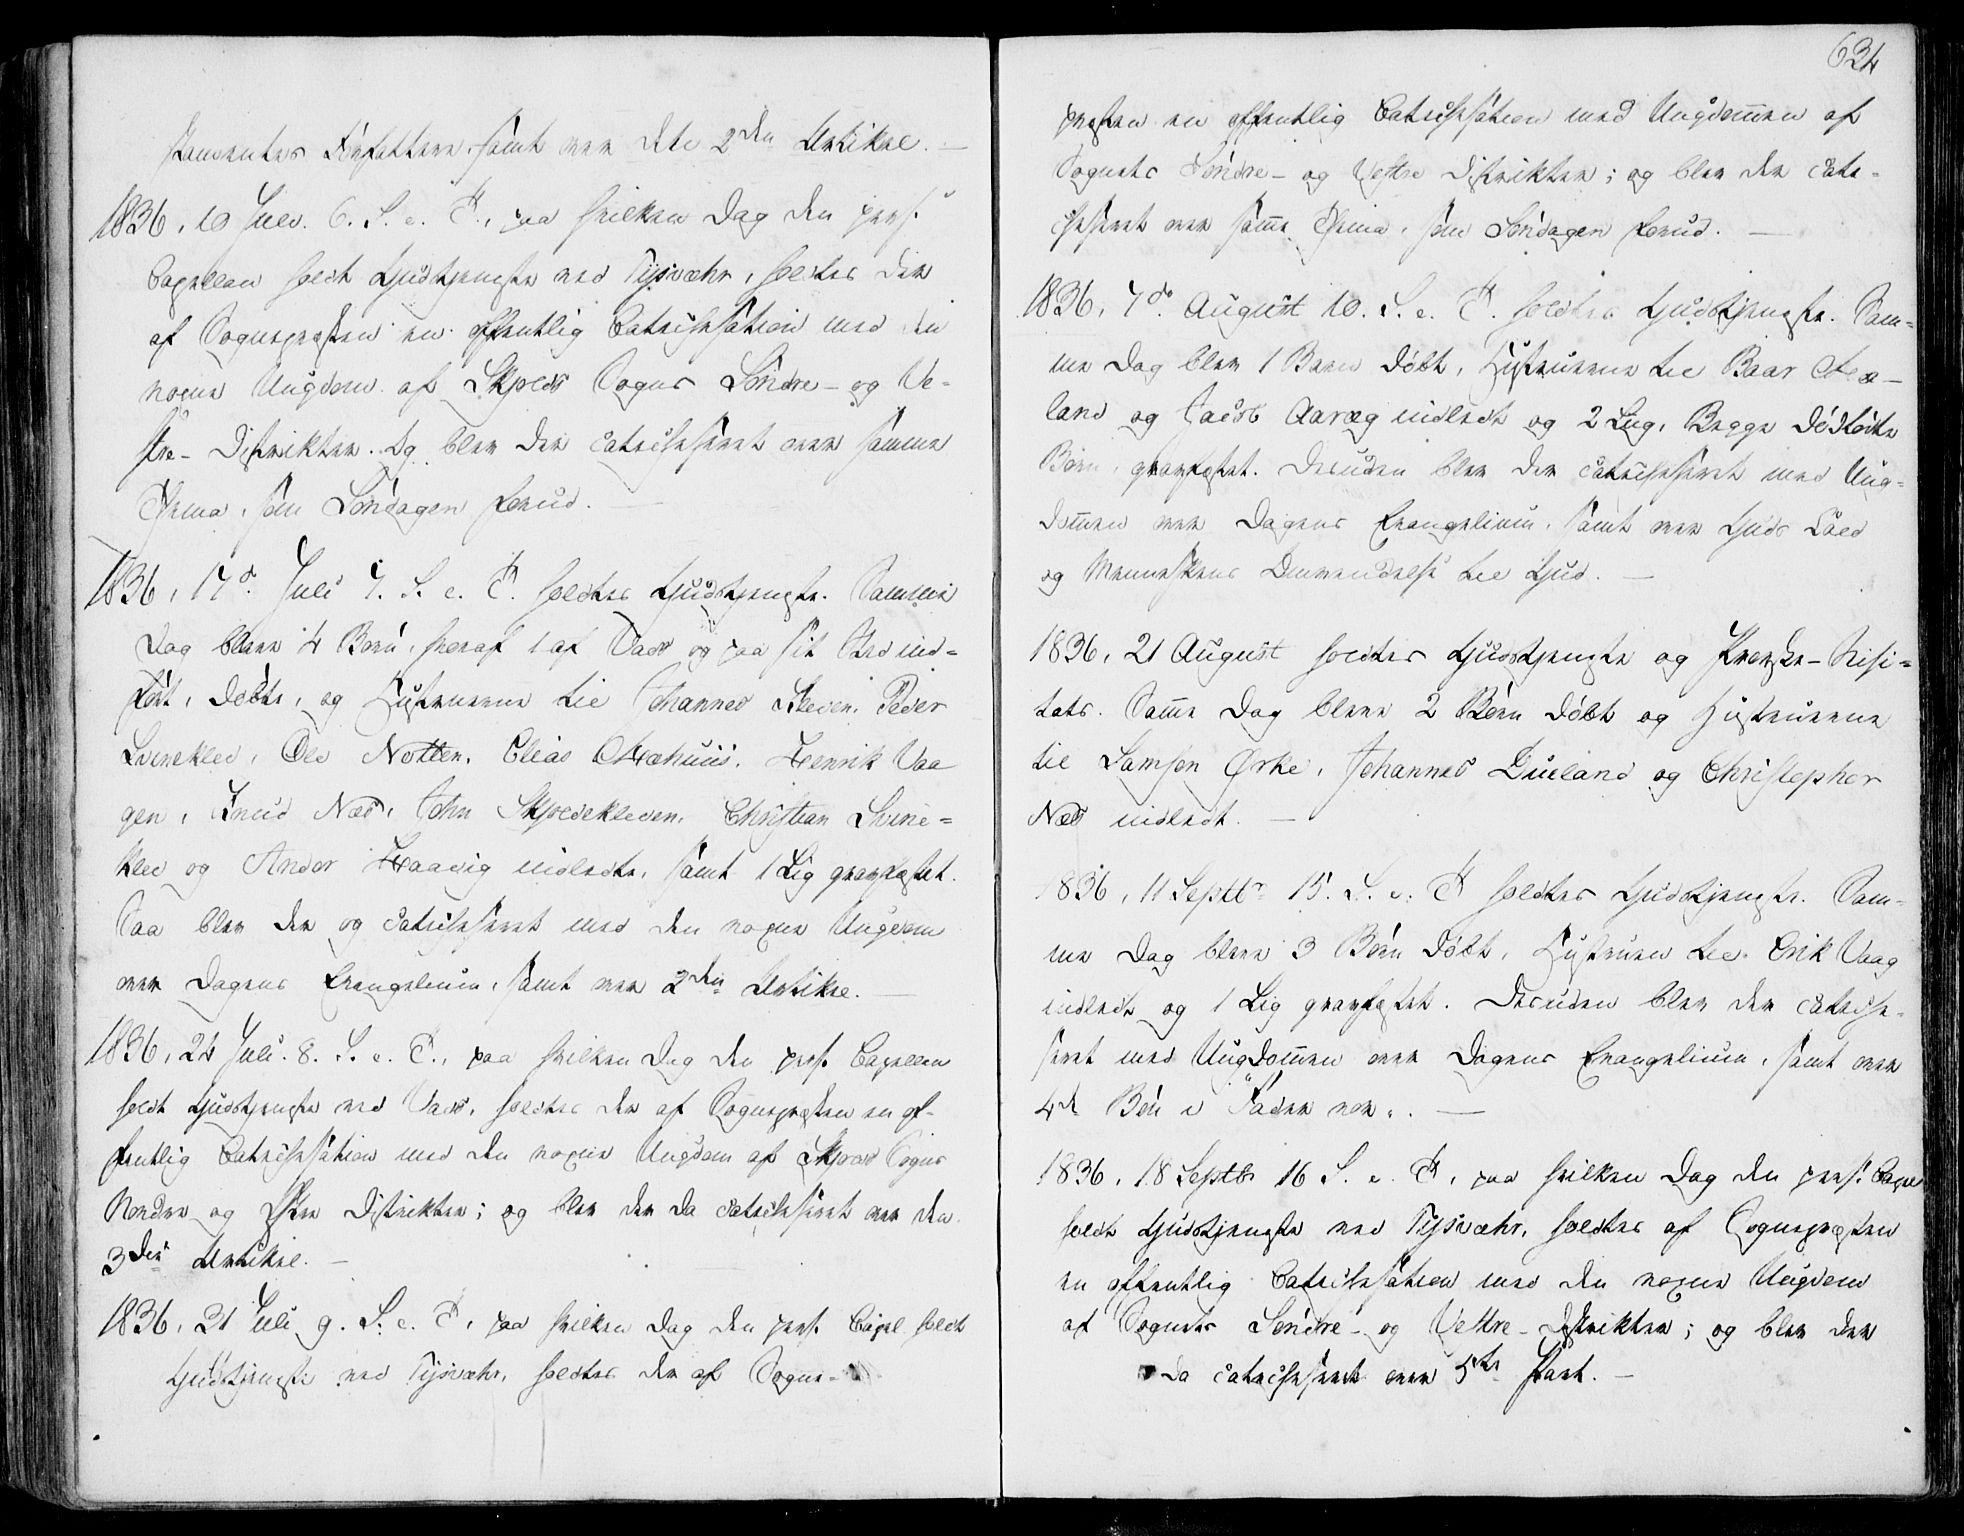 Forfattere samt over dets 2den Artikel. —
1836, 10 Juli. 6. S. e. T., paa hvilken Dag den pers.
Capellan holdt Gudstjeneste ved Tysvæhr, holdtes der
af Sognepresten en offentlig Catechisation med den
Ungdom af Skjolds Sogns Søndre- og Ve-
stre- Distrikter. Og blev der catechiseret over samme
Thema, som Søndagen forud. —
1836, 17de Juli 7. S. e. T. holdtes Gudstjeneste. Samme
Dag bleve 4 Børn, heraf 1 af Vads og paa sit Sted ind-
ført, døbte, og Hustruerne til Johannes Kleven, Peder
Svineklev, Ole Notten, Elias Henrik Vaa
gen, Knud Næs, John Skjoldekleven, Christian Svine-
klev og Ander Haavig indledte, samt 1 Lig gravfæstet.
Saa blev der og catechiseret med den Ungdom
over Dagens Evangelium, samt over 2den Artikel. —
1836, 24 Juli. 8. S. e. T., paa hvilken Dag den pers. Capellan
holdt Gudstjeneste ved Vads, holdtes der af Sognepresten en of-
fentlig Catechisation med den Ungdom af Skjold Sogns
Nordre og Østre Distrikter; og blev der da catechiseret over den
3die Artikel. —
1836, 31 Juli 9. S. e. T., paa hvilken Dag den pers. Capel. holdt
Gudstjeneste ved Tysvæhr, holdtes der af Sogne-
634
presten en offentlig Catechisation med Ungdommen af
Sognets Søndre- og Vestre Distrikter; og blev der cate-
chiseret over samme Thema, som Søndagen forud. —
1836, 7de August 10. S. e. T. holdtes Gudstjeneste. Sam-
me Dag blev 1 Barn døbt, Hustruerne til Baar
land og Jacob Aaræg indledt og 2 Lig, Begge dødfødte
Børn, gravfæstet. Desuden blev der catechiseret med Ung-
dommen over Dagens Evangelium, samt over Guds Kald
og Menneskens Omvendelse til Gud. —
1836, 21 August holdtes Gudstjeneste og Provste-Visi-
tats. Samme Dag bleve 2 Børn døbt og Hustruerne
til Samson Ørke, Johannes Dueland og Christopher
Næs indledt. —
1836, 11 Septbr 15. S. e. T holdtes Gudstjeneste. Sam-
me Dag bleve 3 Børn døbt, Hustruen til Erik Vaag
indledt og 1 Lig gravfæstet. Desuden blev der cateche-
seret med Ungdommen over Dagens Evangelium, samt over
4de Bøn i "Fader vor". —
1836, 18 Septbr 16 S. e. T, paa hvilken Dag den pers. Capel
holdt Gudstjeneste ved Tysvæhr, holdtes af Sognepresten
en offentlig Catechisation med den Ungdom
af Sognets Søndre- og Vestre- Distrikter; og blev der
da catechiseret over 5te Part. —